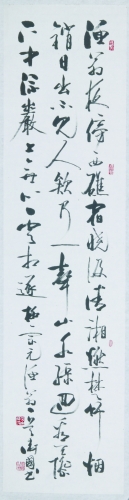 漁翁夜傍西岩宿曉汲清湘燃楚竹烟
銷日出不見人欸乃一聲山水綠迴看天際
下中流巖上無心雲相逐柳宗元漁翁一首